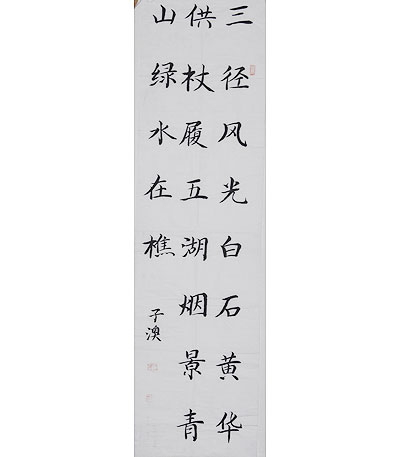 三径风光白石黄华
供杖履五湖烟景青
山绿水在樵
子澳